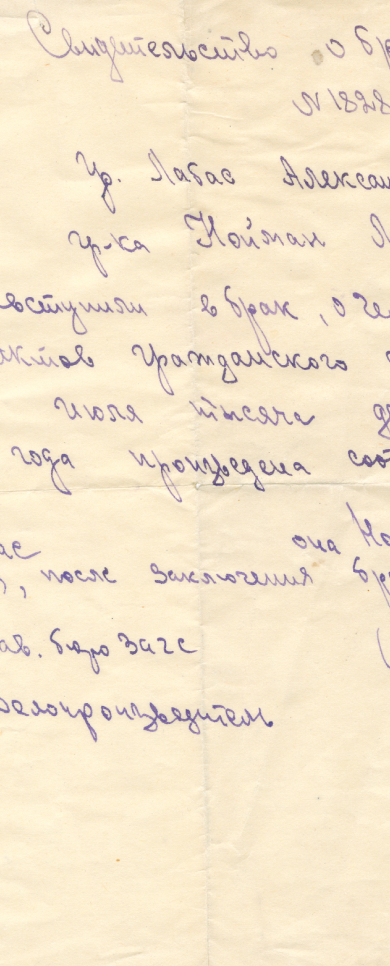 Свидетельство о бр
N 1828
Гр. Лабас Алексан
гр-ка Нойман Л
вступили в брак, о че
актов гражданского
июля тысяча д
года произведена соот
она Но
ас
), после заключения бр
ав. бюро Загс
делопроизводитель